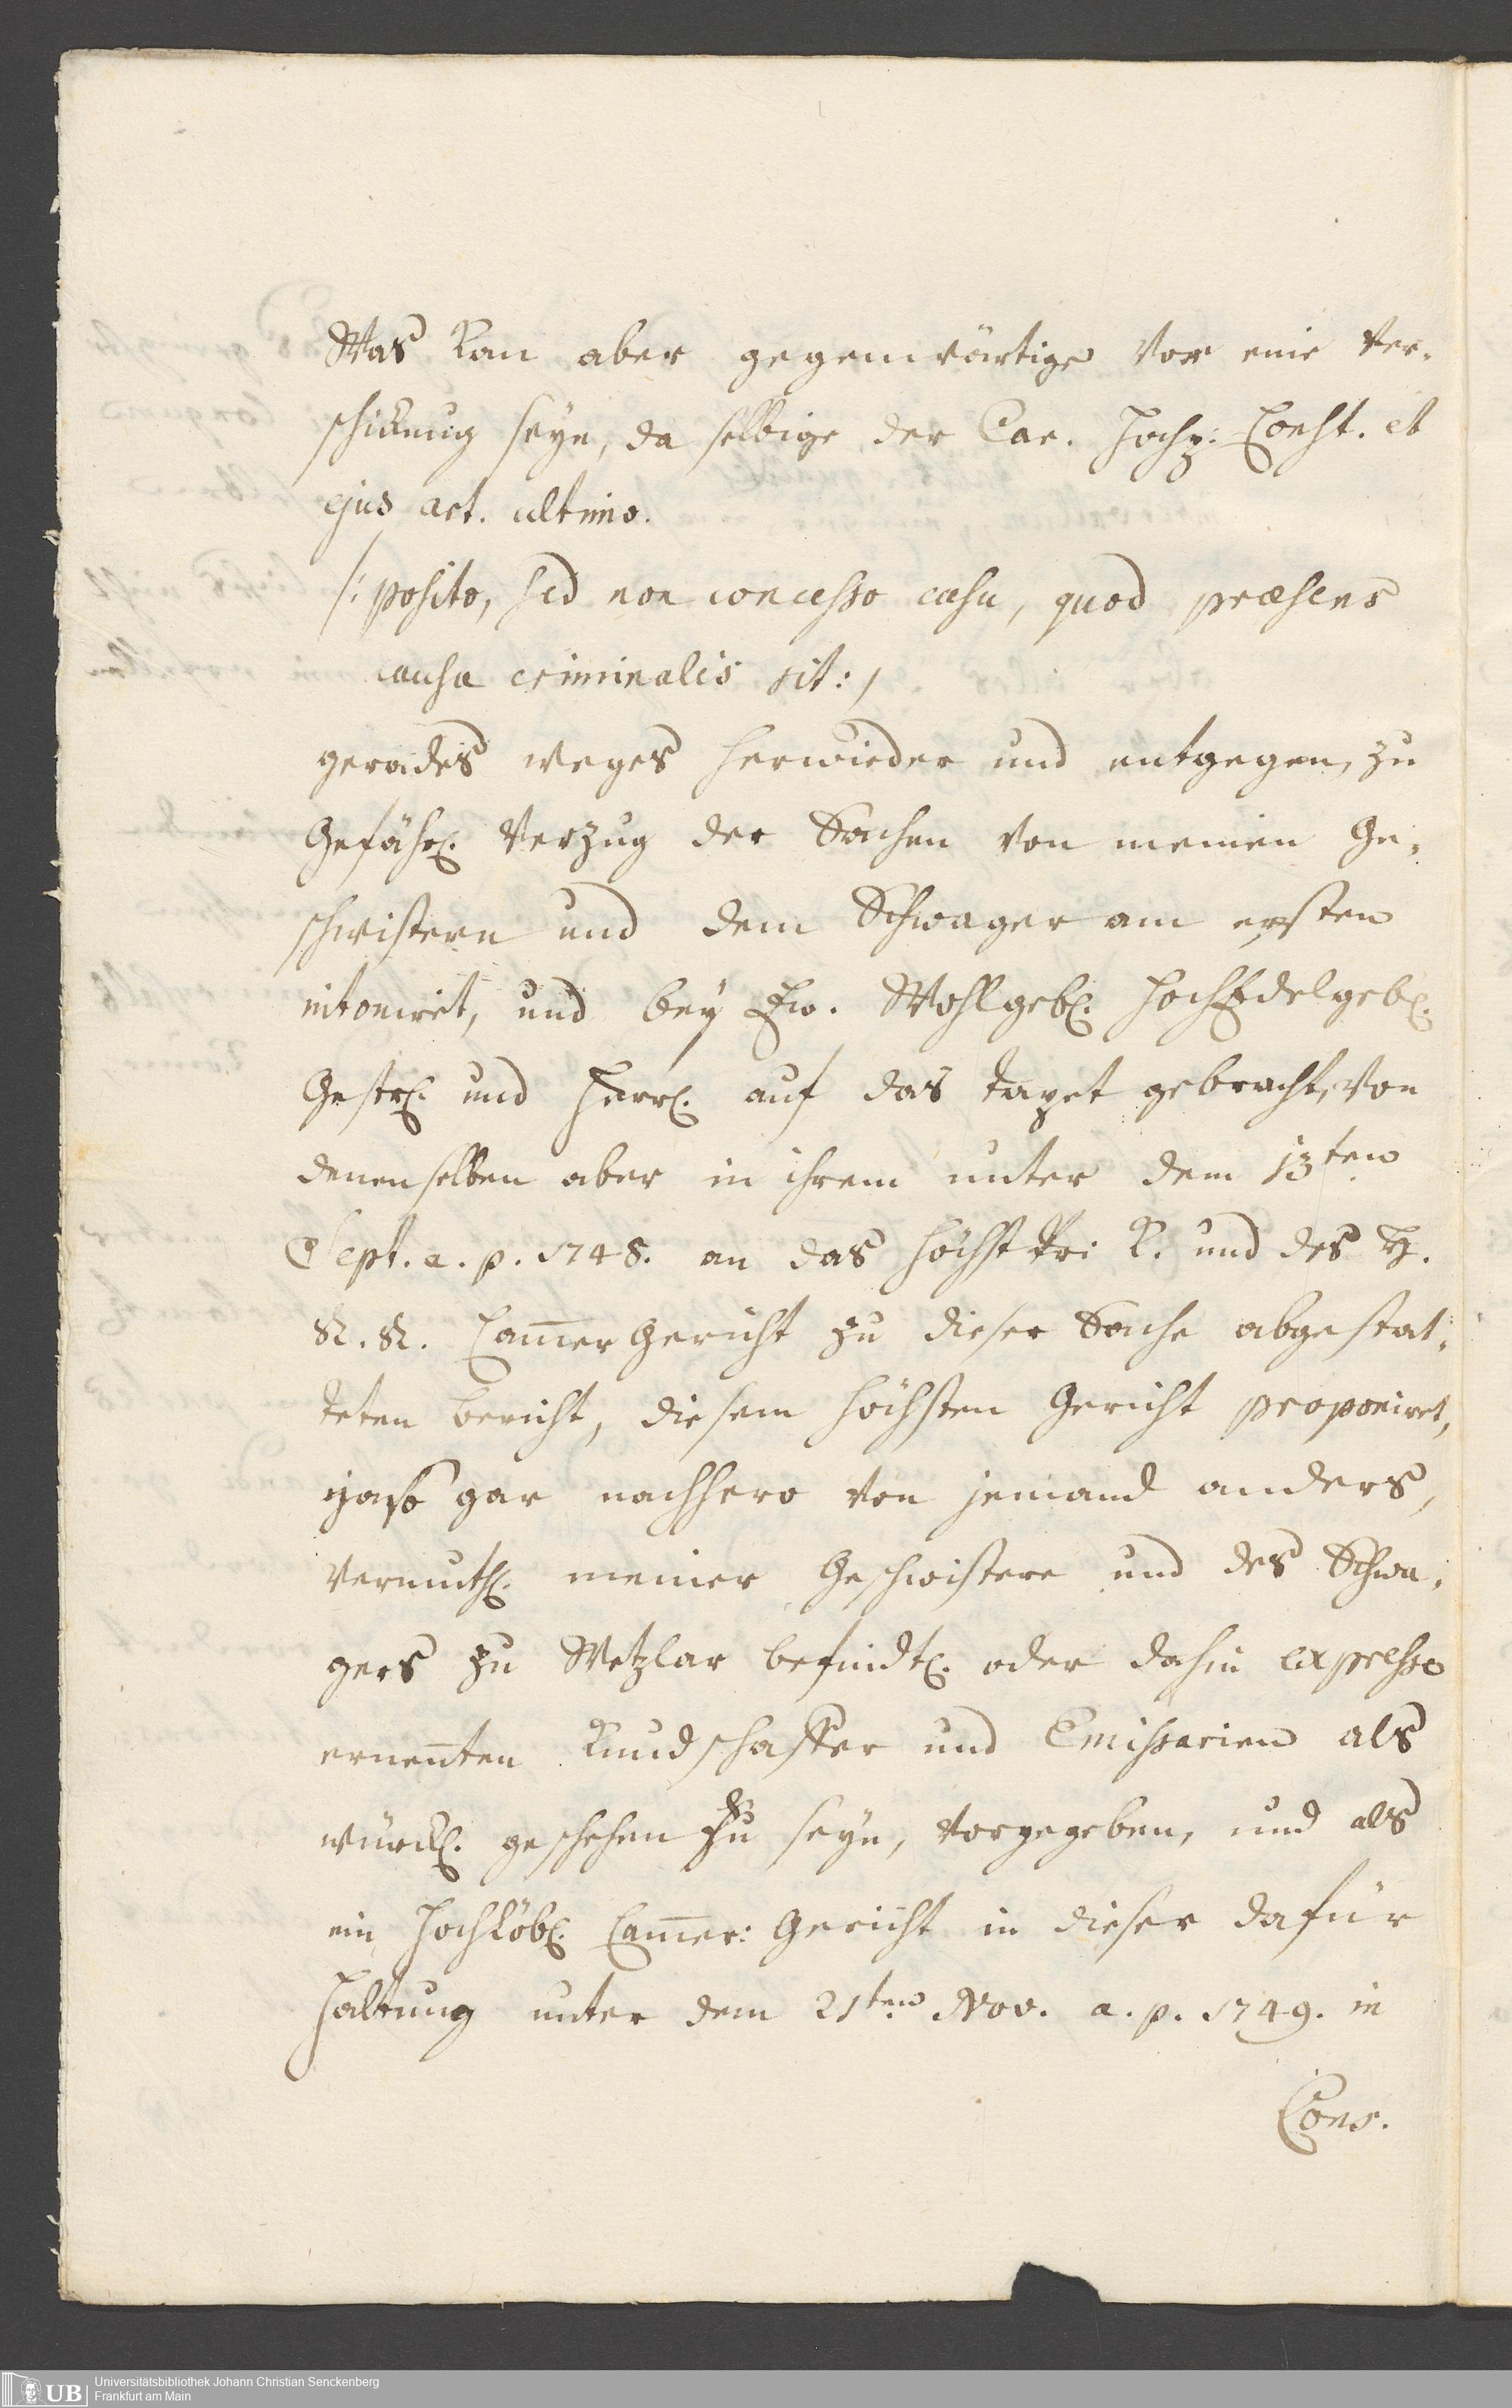 Was kan aber gegenwärtige vor eine Ver-
schickung seyn, da selbige der Car. Hochp: Const. et
ejus art. ultimo.
/: posito, sed non concesso casu, quod præsens
causa criminalis sit: /
gerades weges herwieder und entgegen, zu
Gefährl. Verzug der Sachen von meinen Ge-
schwistern und dem Schwager am ersten
intoniret, und bey Ew. Wohlgebl. HochEdelgebl.
Gestrl. und Herrl. auf das tapet gebracht, von
denenselben aber in ihrem unter dem 13ten
Sept. a. p. 1748. an das höchst K. und des H.
R. R. Cam̅er Gericht zu dieser Sache abgestat-
teten bericht, diesem höchsten Gericht proponiret,
ja so gar nachhero von jemand anders,
vermuthl. meiner Geschwistere und des Schwa-
gers zu Wetzlar befindtl. oder dahin expresse
ernen̅ten Kundschaffer und Emissarien als
würckl. geschehen zu seyn, vorgegeben, und als
ein Hochlöbl. Cam̅er: Gericht in dieser dafür
Haltung unter dem 21ten Nov. a. p. 1749. in
Cons.
UB
Universitätsbibliothek Johann Christian Senckenberg
Frankfurt am Main